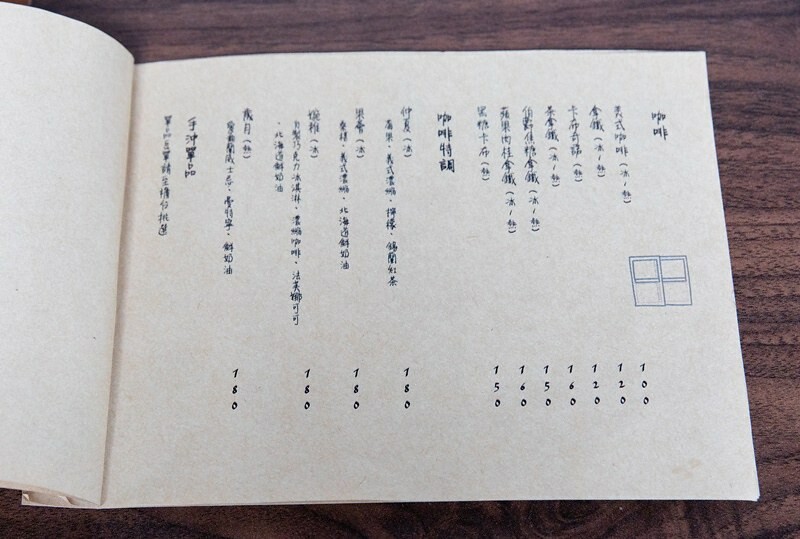 咖啡
美式咖啡(冰/熱) 100
拿鐵(冰/熱) 120
卡布奇諾(熱) 120
茶拿鐵(冰/熱) 160
伯爵焦糖拿鐵(冰/熱) 150
蘋果肉桂拿鐵(冰/熱) 160
黑糖卡布(熱) 150
咖啡特調
仲夏(冰) 180
義式濃縮、檸檬、錫蘭紅茶
(冰) 180
桑椹、義式濃縮、北海道鮮奶油
(冰) 180
自製巧克力冰淇淋、濃縮咖啡、法芙娜可可
、北海道鮮奶油
歲月(熱) 180
愛爾蘭威士忌、鮮奶油
手沖單品
單品豆單請至櫃台挑選